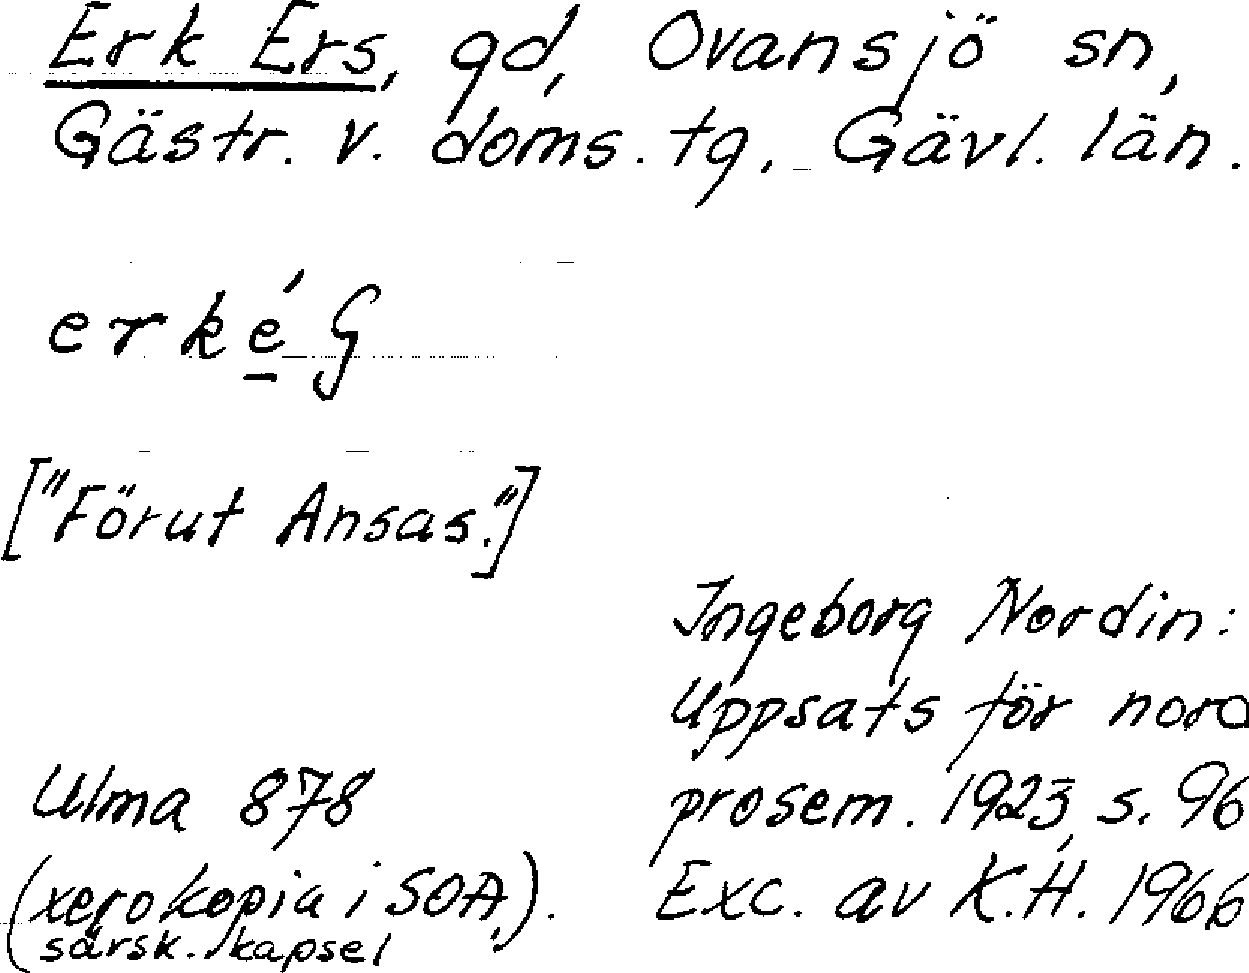 Erk Ers, gd, Ovansjö sn,
Gästr. v. doms. tg, Gävl. län.
erké̲ G
["Förut Ansas."]
Ingeborg Nordin:
Uppsats för nord
prosem. 1923, s. 96
Exc. av K.H. 1966
Ulma 878
(xerokopia i SOA,).
särsk. kapsel